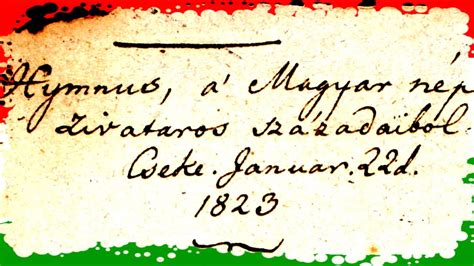 Hymnus, a' Magyar nép
zivataros századaiból
Cseke. Januar. 22d.
1823